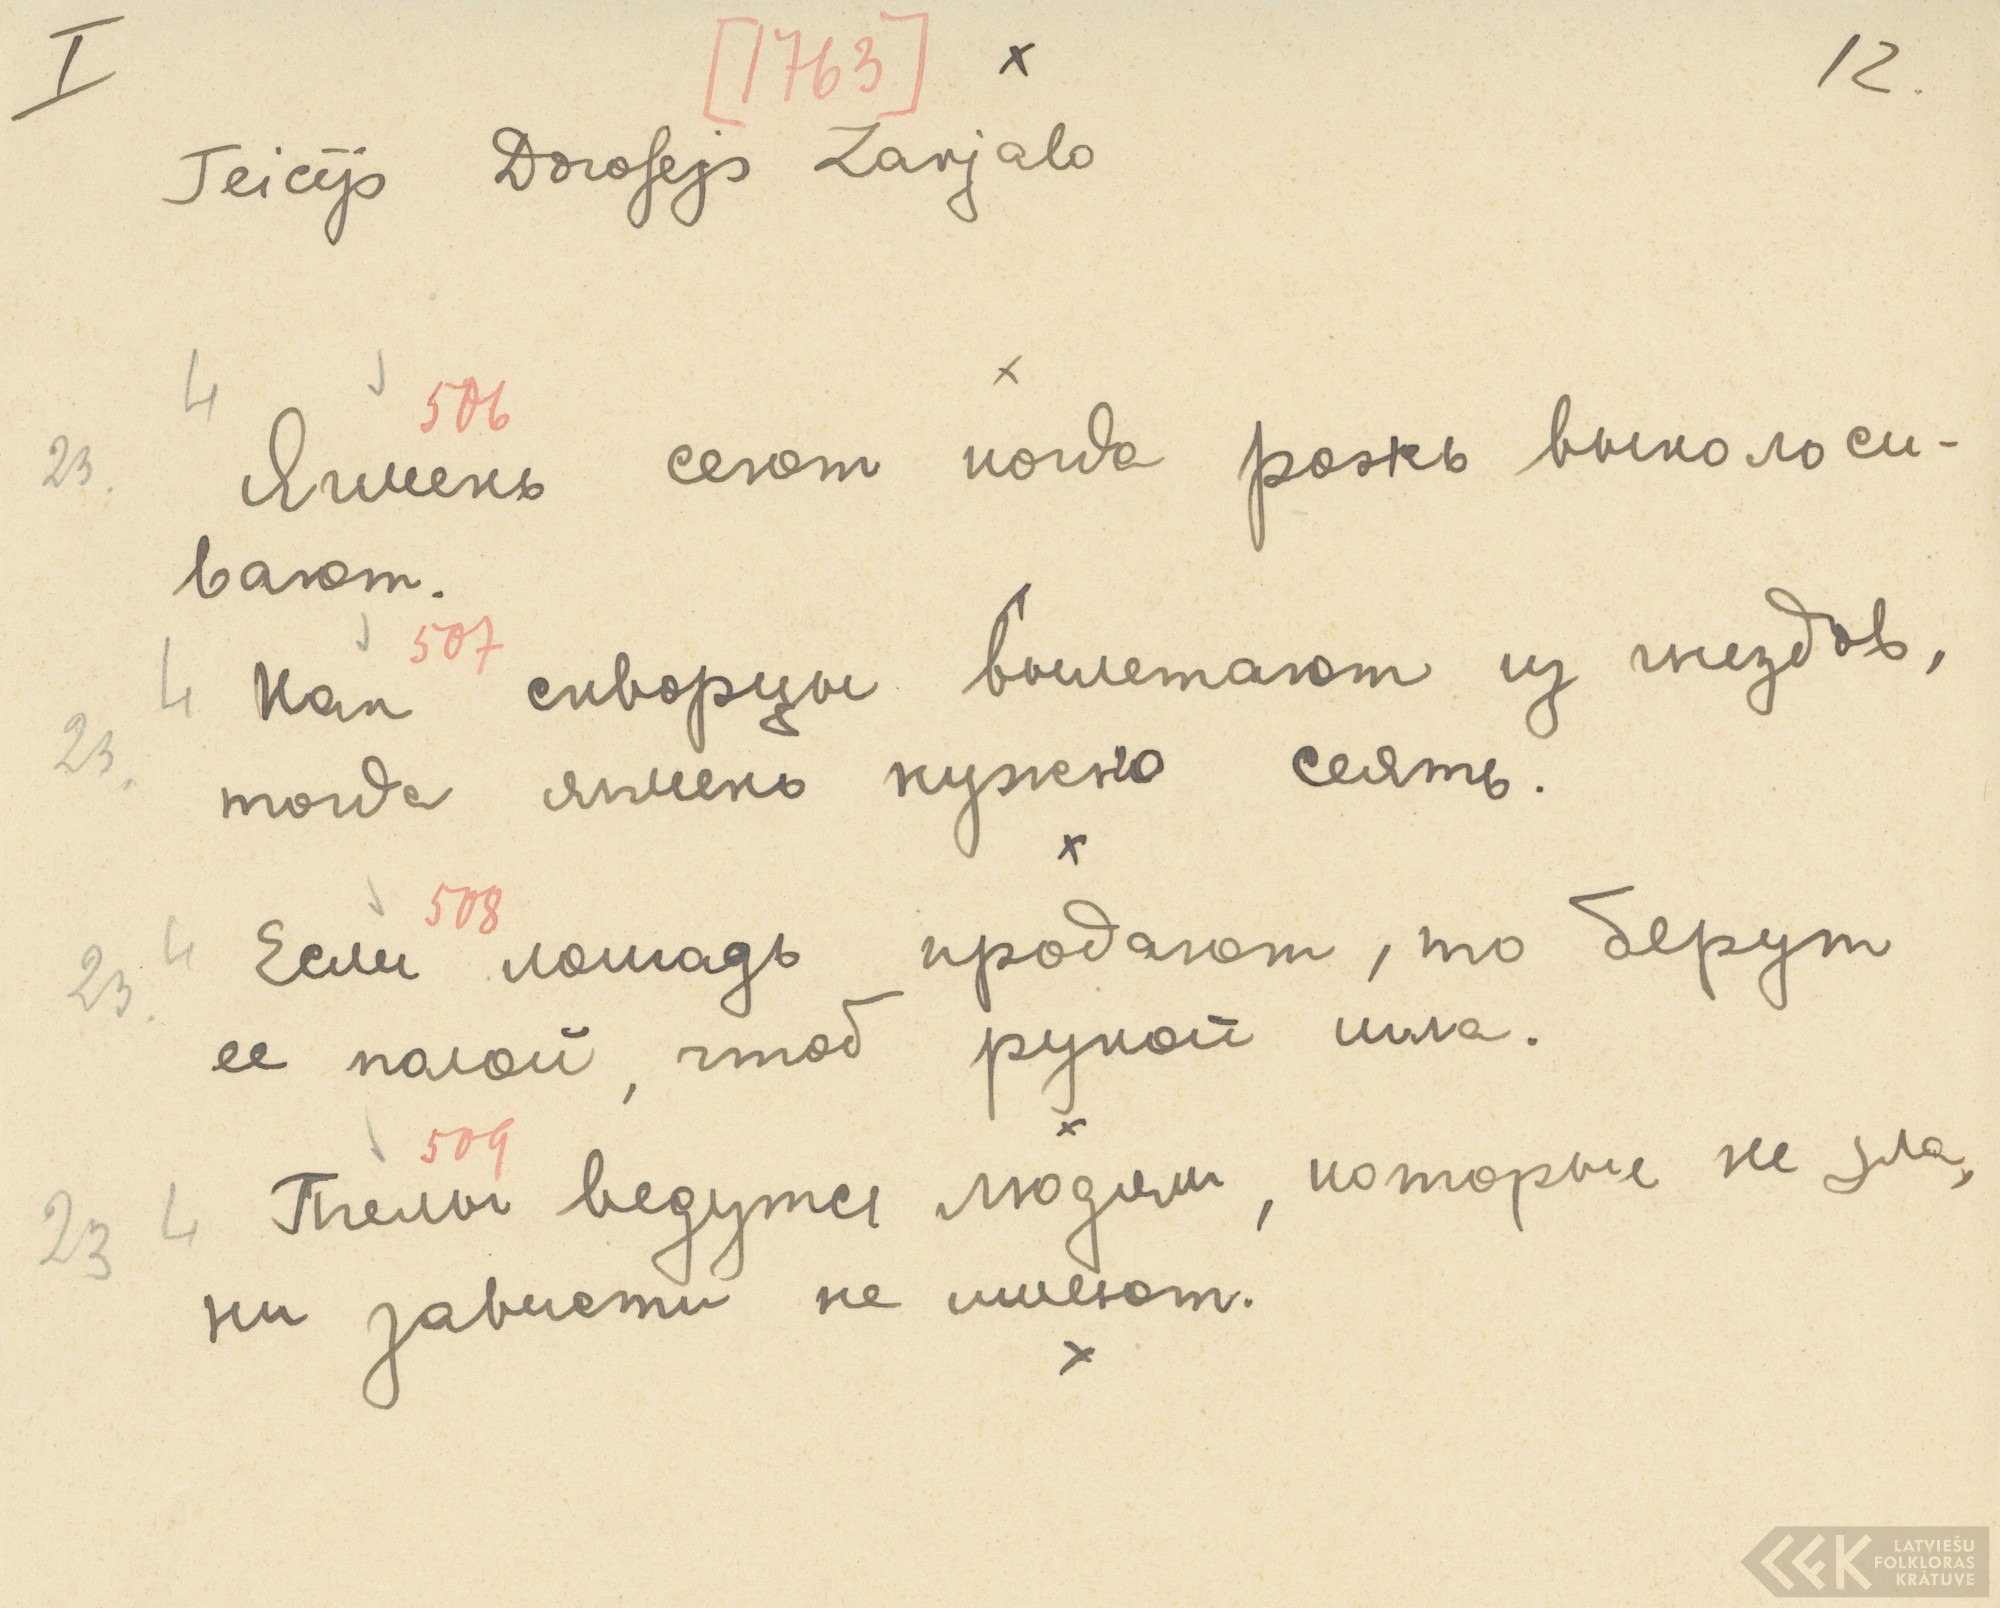 I [1763] x 12.
Teicējs Dorofejs Zavjalo
4 506 x
23. Ячмень сеют когда рожь выколоси-
вают.
4 507
23. Как скворцы вылетают из гнездов,
тогда ячмень нужно сеять.
x
4 508
23. Если лошадь продают, то берут
ее полой, чтоб рукой шла.
x
509
23 4 Пчелы ведутся людям, которые не зла,
ни зависти не имеют.
x
LATVIEŠU
FOLKLORAS
KRĀTUVE